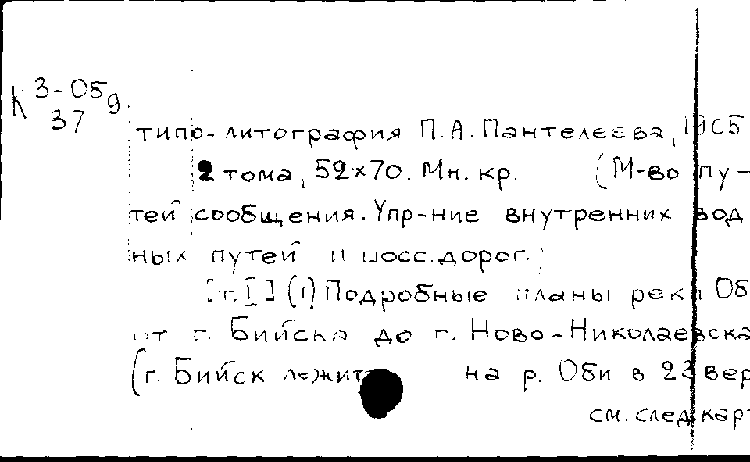 К 3-Об 9.
37
типо-литография П.А. Пантелеева, 1905
2 тома, 52×70. Мн. кр. (М-во пу-
тей сообщения. Упр-ние внутренних вод
ных путей и шосс. дорог.)
[т. I] (1) Подробные планы реки Об
от г. Бийска до г. Ново-Николаевска
(г. Бийск лежит на р. Оби в 23 вер
см. след. карт